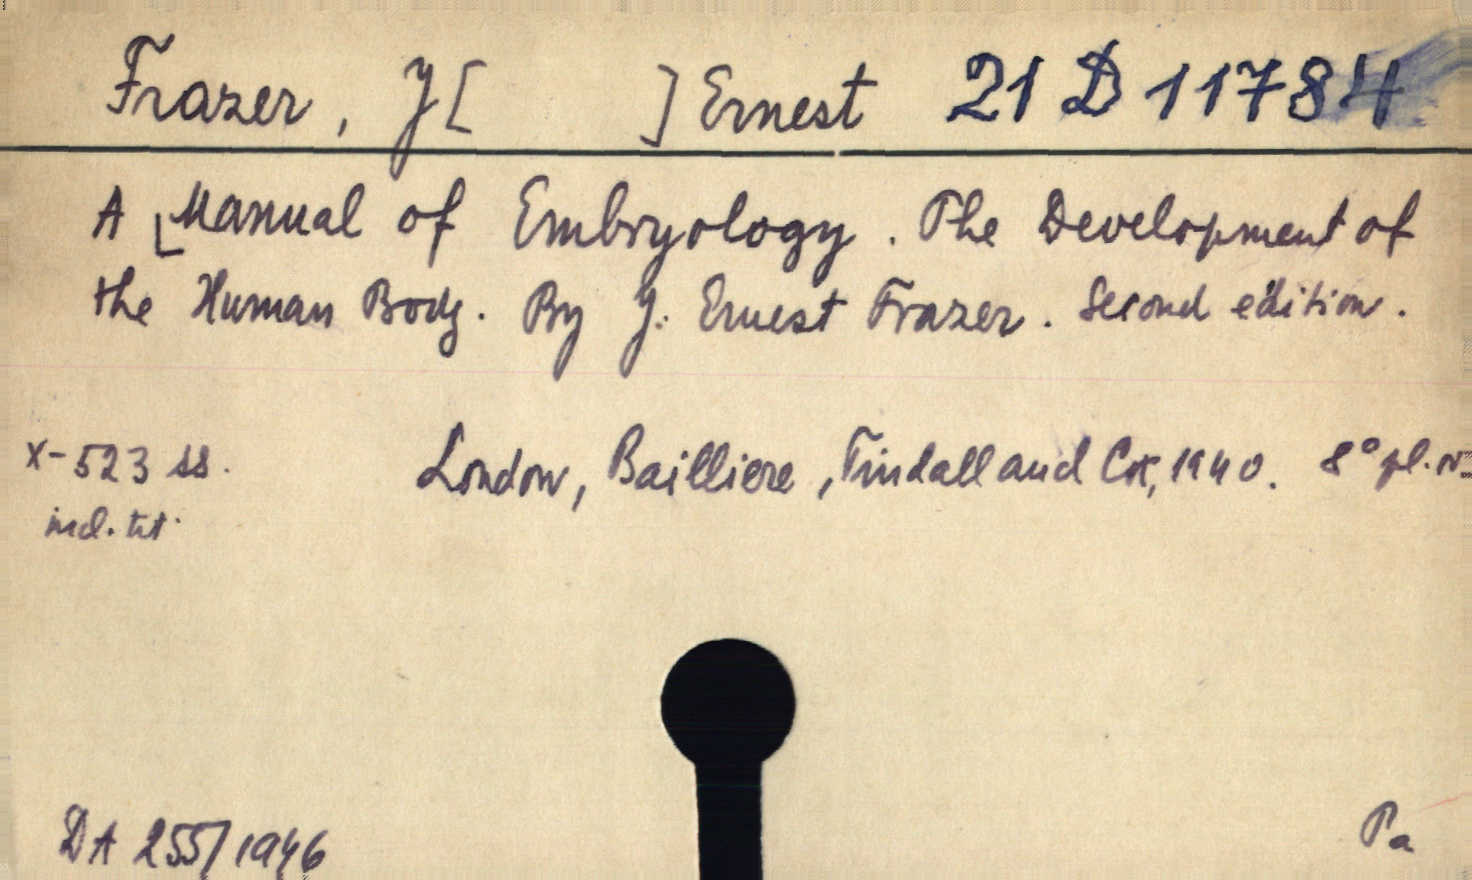 Frazer, J[ ] Ernest 21 D 11784
A Manual of Embryology. The Development of
the Human Body. By J. Ernest Frazer. Second edition.
X-523 ss. London, Bailliere, Tindall and Cox, 1940. 8° pl.
incl. tit.
DA 255/1946 Pa